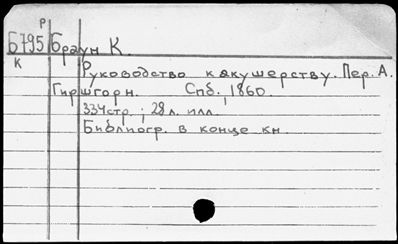 Р
Б795 Браун К.
К
Руководство к акушерству. Пер. А.
Гиршгорн. Спб., 1860.
334 стр.; 28 л. илл.
Библиогр. в конце кн.